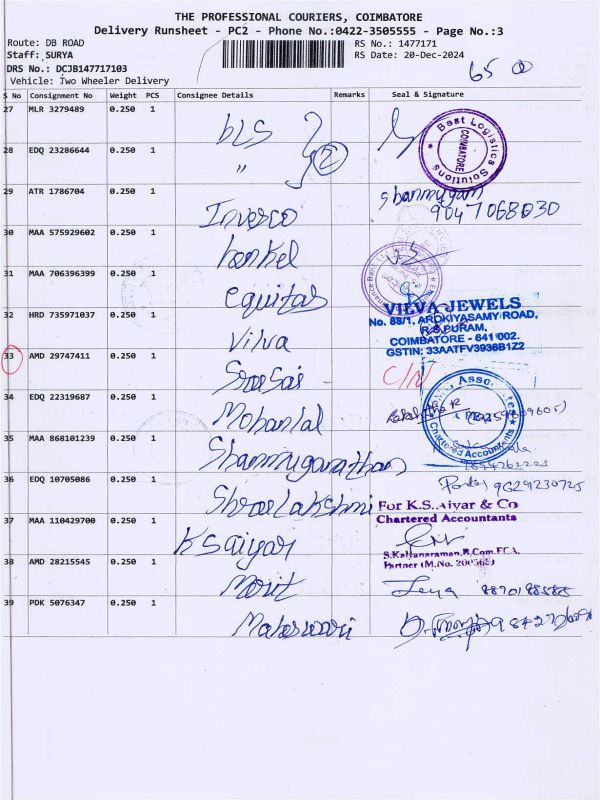 THE PROFESSIONAL COURIERS, COIMBATORE
Delivery Runsheet - PC2 - Phone No.:0422-3505555 - Page No.:3
Route: DB ROAD
Staff: SURYA
DRS No.: DCJB147717103
Vehicle: Two Wheeler Delivery
RS No.: 1477171
RS Date: 20-Dec-2024
65
S No Consignment No Weight PCS Consignee Details Remarks Seal & Signature
27 MLR 3279489 0.250 1
bLS
Best Logistics Solutions
COIMBATORE
28 EDQ 23286644 0.250 1
" 2
29 ATR 1786704 0.250 1
Inverco
Shanmugam
9047068030
30 MAA 575929602 0.250 1
hankel
31 MAA 706396399 0.250 1
equitas
32 HRD 735971037 0.250 1
Vilva
VILVA JEWELS
No. 88/1, AROKIYASAMY ROAD,
R.S.PURAM,
COIMBATORE - 641 002.
GSTIN: 33AATFV3936B1Z2
33 AMD 29747411 0.250 1
C/N
34 EDQ 22319687 0.250 1
Mohanlal
Chartered Accountants
35 MAA 868101239 0.250 1
Shanmuganathan
36 EDQ 10705086 0.250 1
Shree Lakshmi
37 MAA 110429700 0.250 1
KSaiyar
For K.S.Aiyar & Co
Chartered Accountants
S.Kalyanaraman.B.Com.FCA.
Partner (M.No. 200565)
38 AMD 28215545 0.250 1
Merit
Jeya
39 PDK 5076347 0.250 1
Maheswari